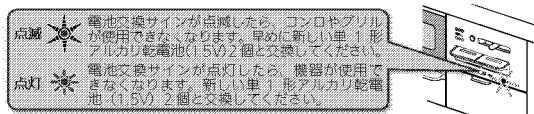 点滅
電池交換サインが点滅したら、コンロやグリル
が使用できなくなります。早めに新しい単1形
アルカリ乾電池(1.5V)2個と交換してください。
点灯
電池交換サインが点灯したら、機器が使用で
きなくなります。新しい単1形アルカリ乾電
池(1.5V)2個と交換してください。